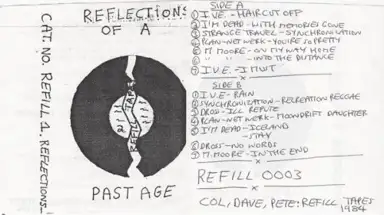 CAT. NO. REFILL 1. REFLECTIONS-
REFLECTIONS
OF A
REFILL TAPES
PAST AGE
SIDE A
① I.V.E - HAIRCUT OFF
② I'M DEAD - WITH MEMORIES GONE
③ STRANGE TRAVEL - SYNCHRONISATION
④ PLAN-NET WERK - YOU'RE PRETTY
⑤ M. MOORE - ON MY WAY HOME
⑥ " " - INTO THE DISTANCE
⑦ I.V.E - I MUST
SIDE B
① I.V.E - RAIN
② SYNCHRONIZATION - RECREATION REGGAE
③ DROSS - ILL REPUTE
④ PLAN-NET WERK - MOONDRIFT DAUGHTER
⑤ I'M DEAD - ICELAND
- STAY
DROSS - NO WORDS
M. MOORE - IN THE END
REFILL 0003
COL, DAVE, PETE: REFILL TAPES
1984